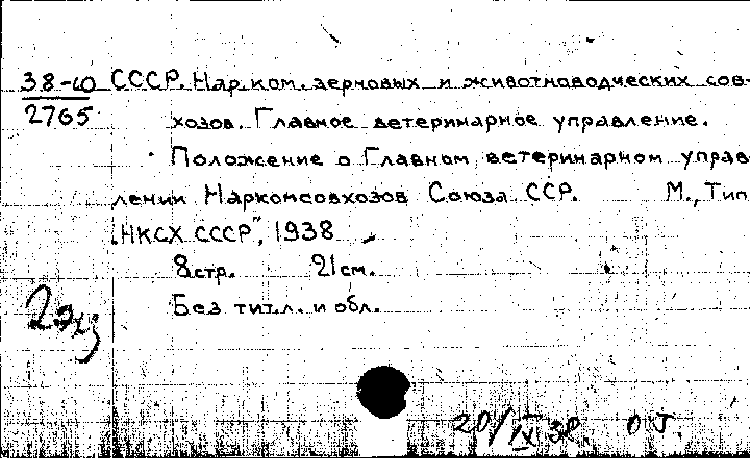 38-10 СССР. Нар.ком. зерновых и животноводческих сов-
2765 хозов. Главное ветеринарное управление.
Положение о Главном ветеринарном управ
лении Наркомсовхозов Союза ССР. М., Тип
"НКСХ СССР", 1938
8 стр. 21 см.
2 экз
Без тит.л. и обл.
20/IX 38.